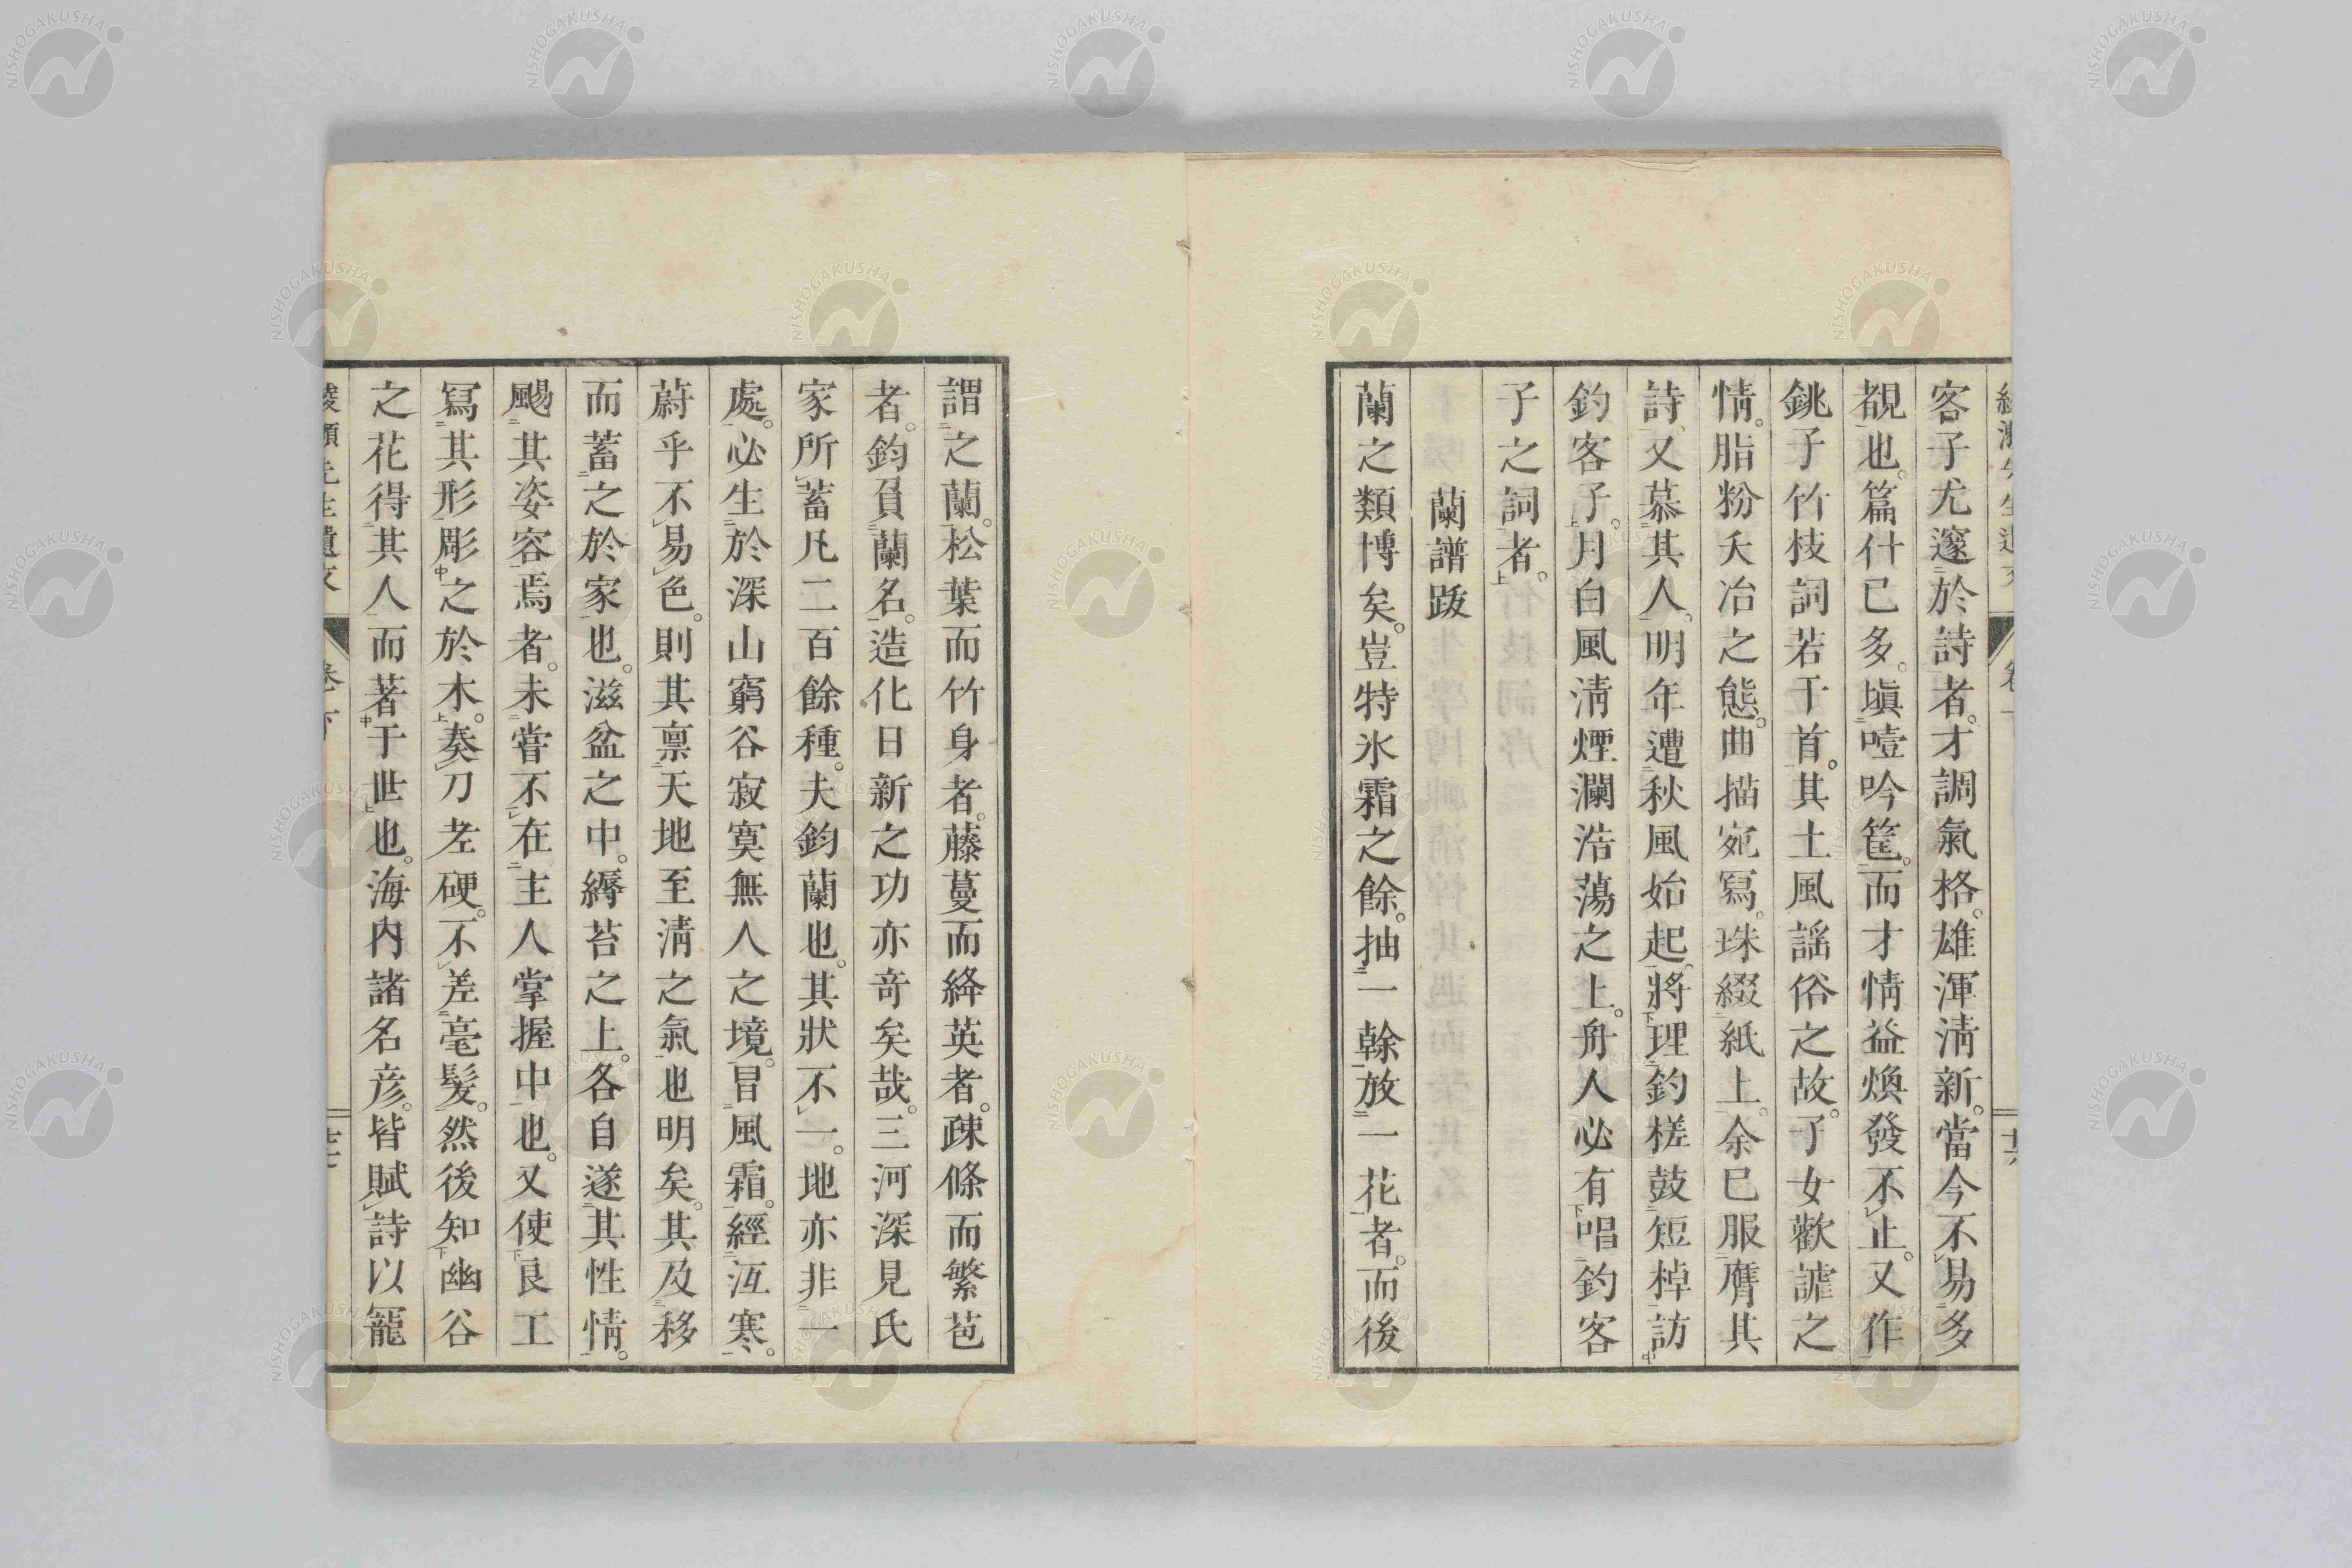 客子尤邃於詩者。才調氣格。雄渾淸新。當今不易多
覩也。篇什已多。塡噎吟筐。而才情益煥發不止。又作
銚子竹枝詞若干首。其土風謡俗之故。子女歡謔之
情。脂粉夭冶之態。曲描宛寫。珠綴紙上。余已服膺其
詩、又慕其人、明年遭秋風始起、將理釣槎鼓短棹訪
釣客子。月白風淸煙瀾浩蕩之上。舟人必有唱釣客
子之詞者。
蘭譜跋
蘭之類博矣。豈特氷霜之餘。抽一幹放一花者。而後
謂之蘭。松葉而竹身者。藤蔓而絳英者。疎條而繁苞
者。鈞負蘭名。造化日新之功亦竒矣哉。三河深見氏
家所蓄凡二百餘種。夫鈞蘭也。其狀不一。地亦非一
處。必生於深山窮谷寂寞無人之境。冒風霜。經沍寒。
蔚乎不易色。則其禀天地至淸之氣也明矣。其及移
而蓄之於家也。滋盆之中。縟苔之上。各自遂其性情。
颺其姿容焉者。未甞不在主人掌握中也。又使良工
寫其形彫之於木。奏刀孝硬。不差毫髮。然後知幽谷
之花得其人而著于世也。海内諸名彦。皆賦詩以寵
先生遺文
卷下